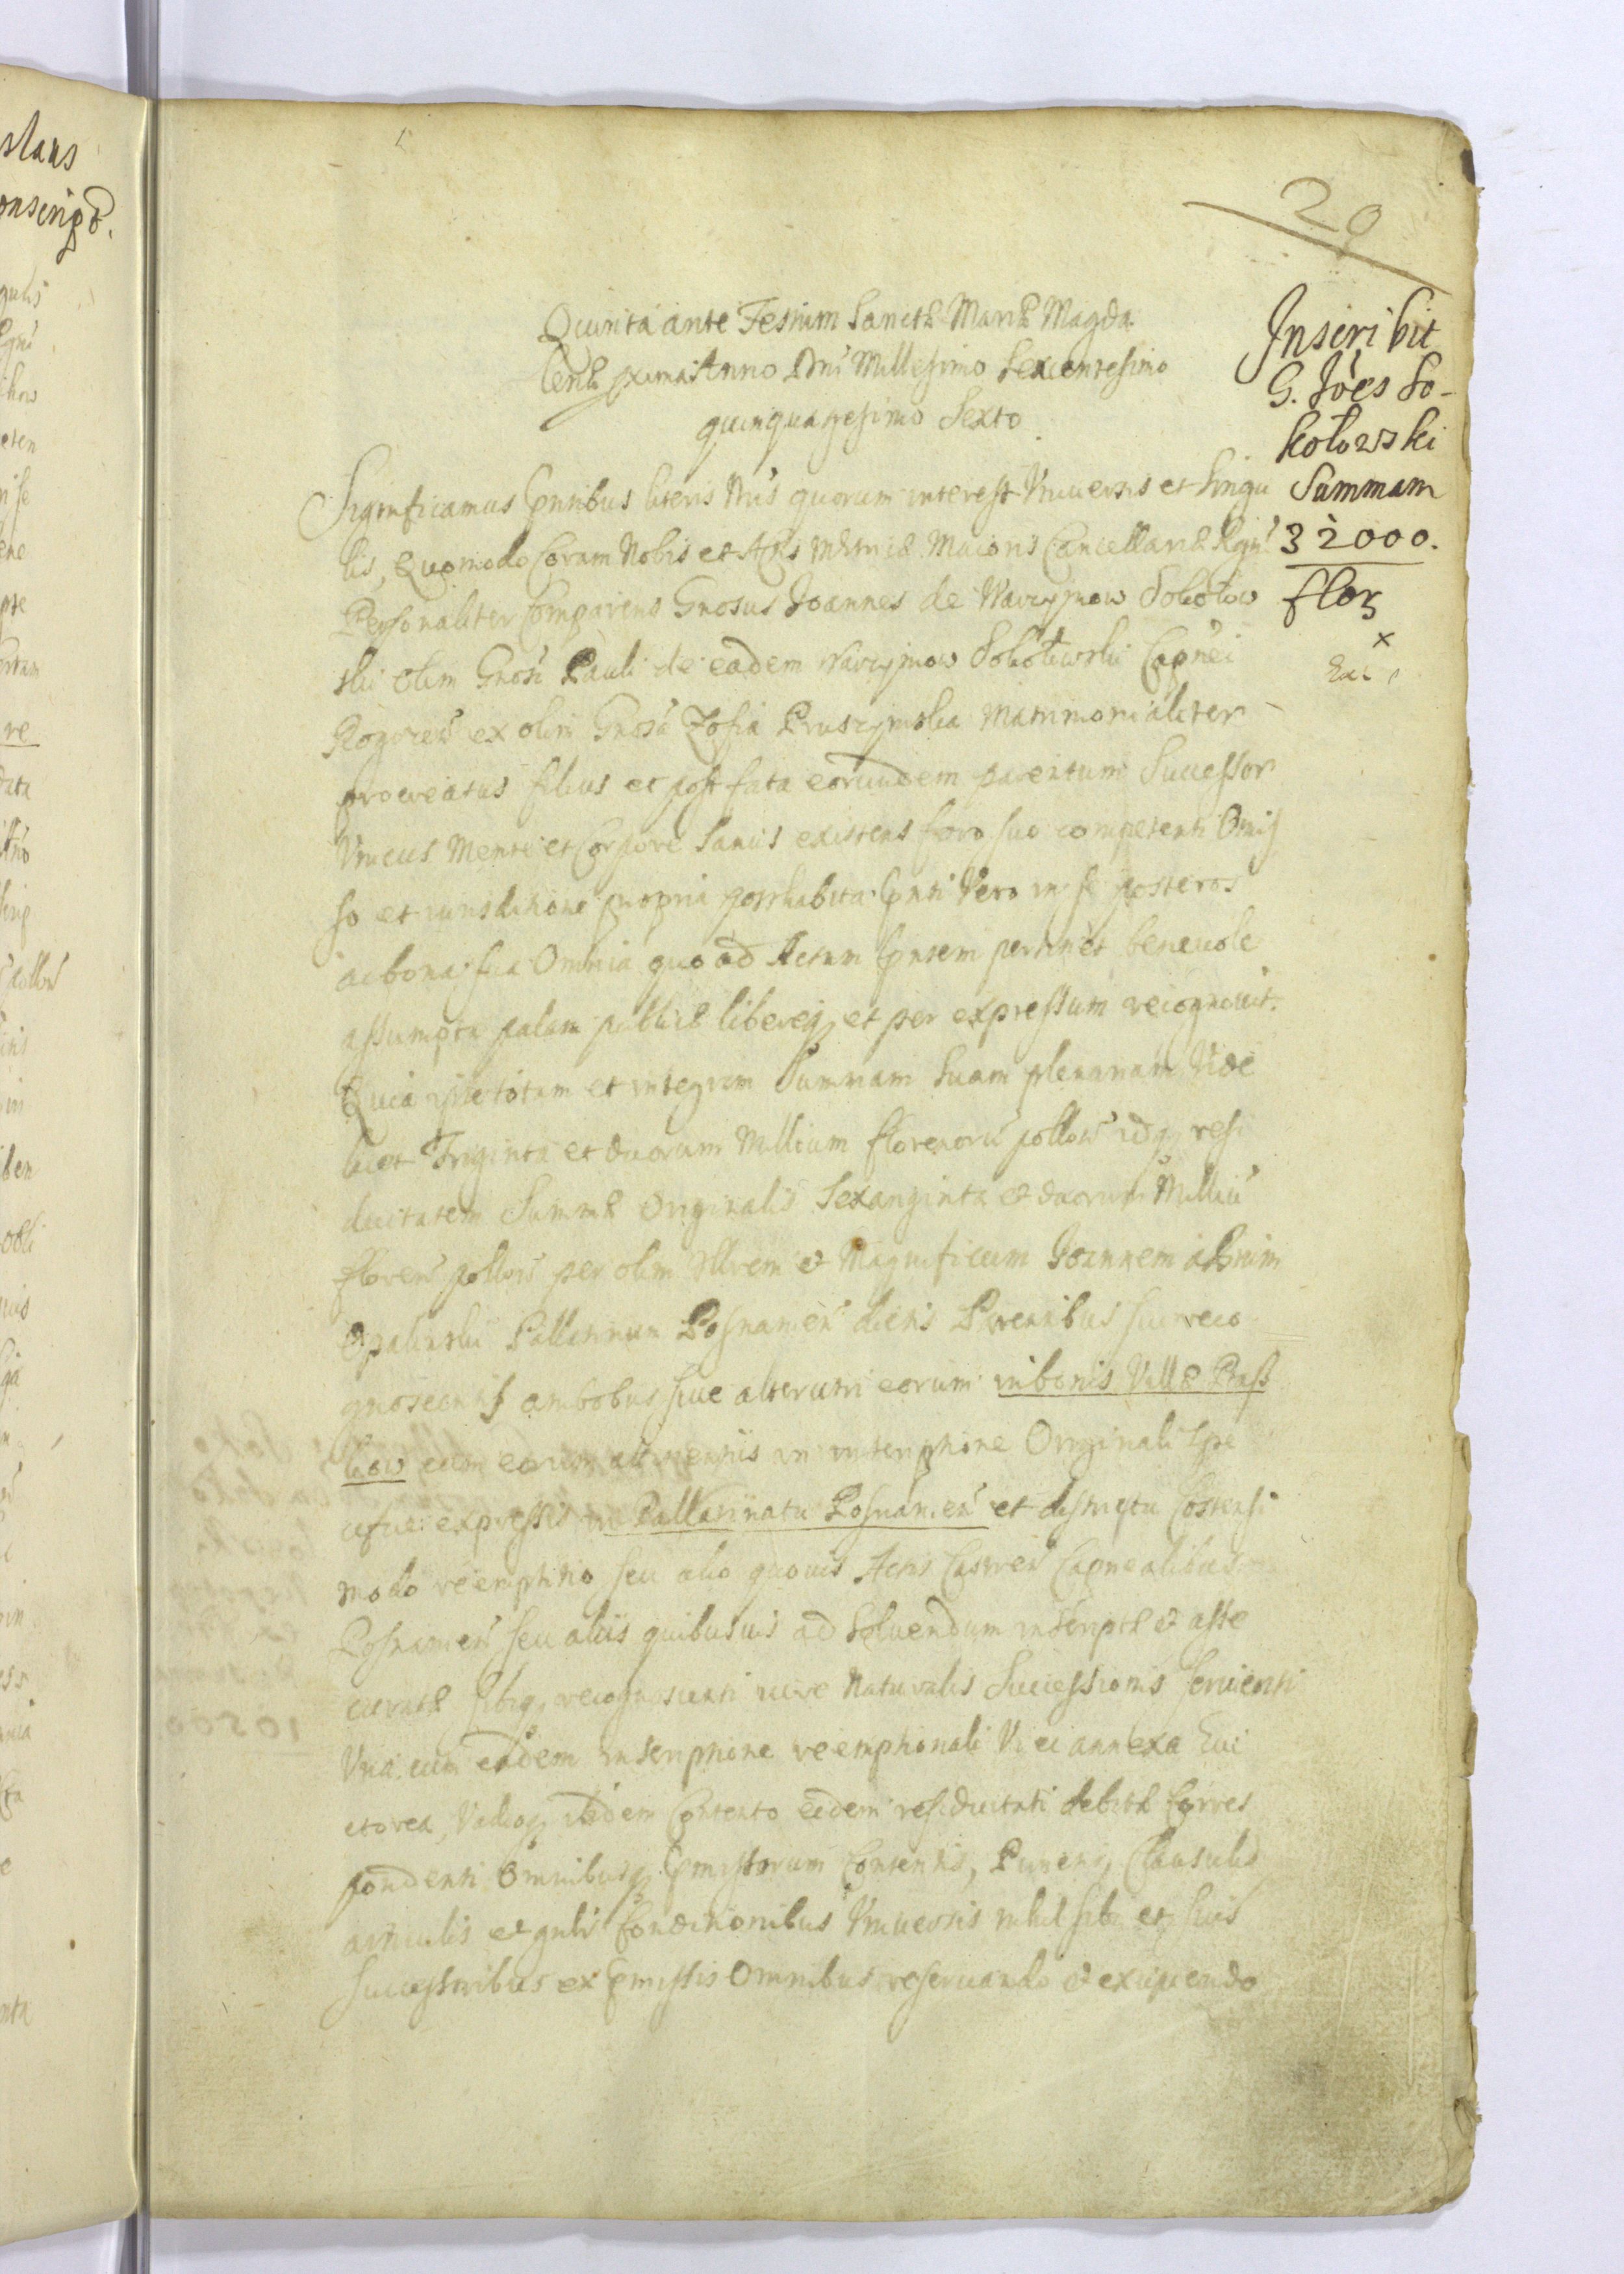 29
Quinta ante Festum Sanctæ Mariæ Magda
lenæ pxima Anno Dni Millesimo Sexcentesimo
quinquagesimo Sexto
Inscribit
G. Jóes So-
kołowski
Summam
32000.
flor
x
Significamus pntibus literis Nris quorum interest Vniuersis et Singu
lis, Quomodo Coram Nobis et Actis Metricæ Maioris Cancellariæ Regni
Personaliter Comparens Gnosus Joannes de Warzymow Sokołow
ski olim Gnosi Pauli de eadem Warzymow Sokołowski Capnei
Rogozen ex olim Gnosa Zofia Pruszynska Matrimonialiter
procreatus filius et post fata eorundem parentum Successor
Vnicus Mente et Corpore Sanus existens foro suo competenti Omis
so et iurisdictione propria posthabita pnti Vero in se posteros
ac bona sua Omnia quo ad Actum pntem pertinet beneuole
assumpta palam publicæ libereq et per expressum recognouit.
Quia ipse totam et integram Summam Suam plenariam Vide
licet Triginta et duorum Millium florenorū pollow idq resi
duitatem Summæ Originalis Sexanginta et duorum Milliū
floren pollow per olim Illrem et Magnificum Joannem a Bnim
Opalinski Pallatinum Posnanien dictis Parentibus sui reco
gnoscentis ambobus siue alterutri eorum in bonis Villæ
cum eorum attinentiis in inscriptione Originali Spe
cifice expressis in Pallatinatu Posnanien et districtu Costensi
modo reemptitio seu alio quouis Actis Castren Capnealibus
Posnanien seu aliis quibusuis ad Soluendum inscriptæ et asse
curatæ sibiq recognoscenti iure Naturalis Successionis seruienti
Vna cum eadem inscriptione reemptionali Vi ei annexa Eui
ctorea, Vadioq ibidem Contento eidem residuitati debitæ Corres
pondenti Omnibusq pmissorum Contentis, Punctis, Clausulis
articulis et gnlis Conditionibus Vniuersis nihil sibi et suis
Successoribus ex pmissis Omnibus reseruando et excipiendo